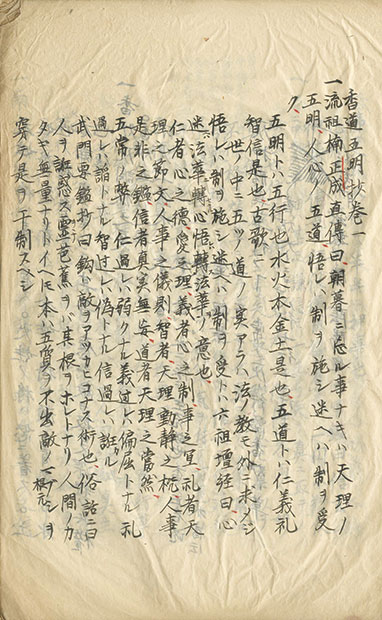 香道五明抄巻一
一流祖楠正成直傳曰朝暮ニ忘ル事ナキハ天理ノ
五明人心ノ五道悟レハ制ヲ施シ迷ヘハ制ヲ受
ク
五明トハ五行也水火木金土是也五道トハ仁義礼
智信是也古歌ニ
世ノ中ニ五ツノ道ノ実アラハ法ノ教モ外ニ求メシ
悟レハ制ヲ施シ迷ヘハ制ヲ受トハ六祖壇経曰心
迷法華轉心悟轉法華ノ意也
仁者心之德愛之理義者心之制事之宜礼者天
理之節文人事之儀則智者天理動静之機人事
是非之鑑信者真実無妄道者天理之當然
五常ノ略仁過レハ弱クナル義過レハ偏屈トナル礼
過レハ諂トナル智過レハ偽トナル信過レハ誑カル
武門要鑑抄曰鈎ハ敵ヲアツカヒコナス術也俗話ニ曰
人ヲ誑惑スル芭蕉ヲバ其根ヲホレトナリ人間ノカ
タキ無量ナリトイヘモ本ハ五寳ヲ不出敵ノマブシヲ
察テ是ヲ干制スヘシ